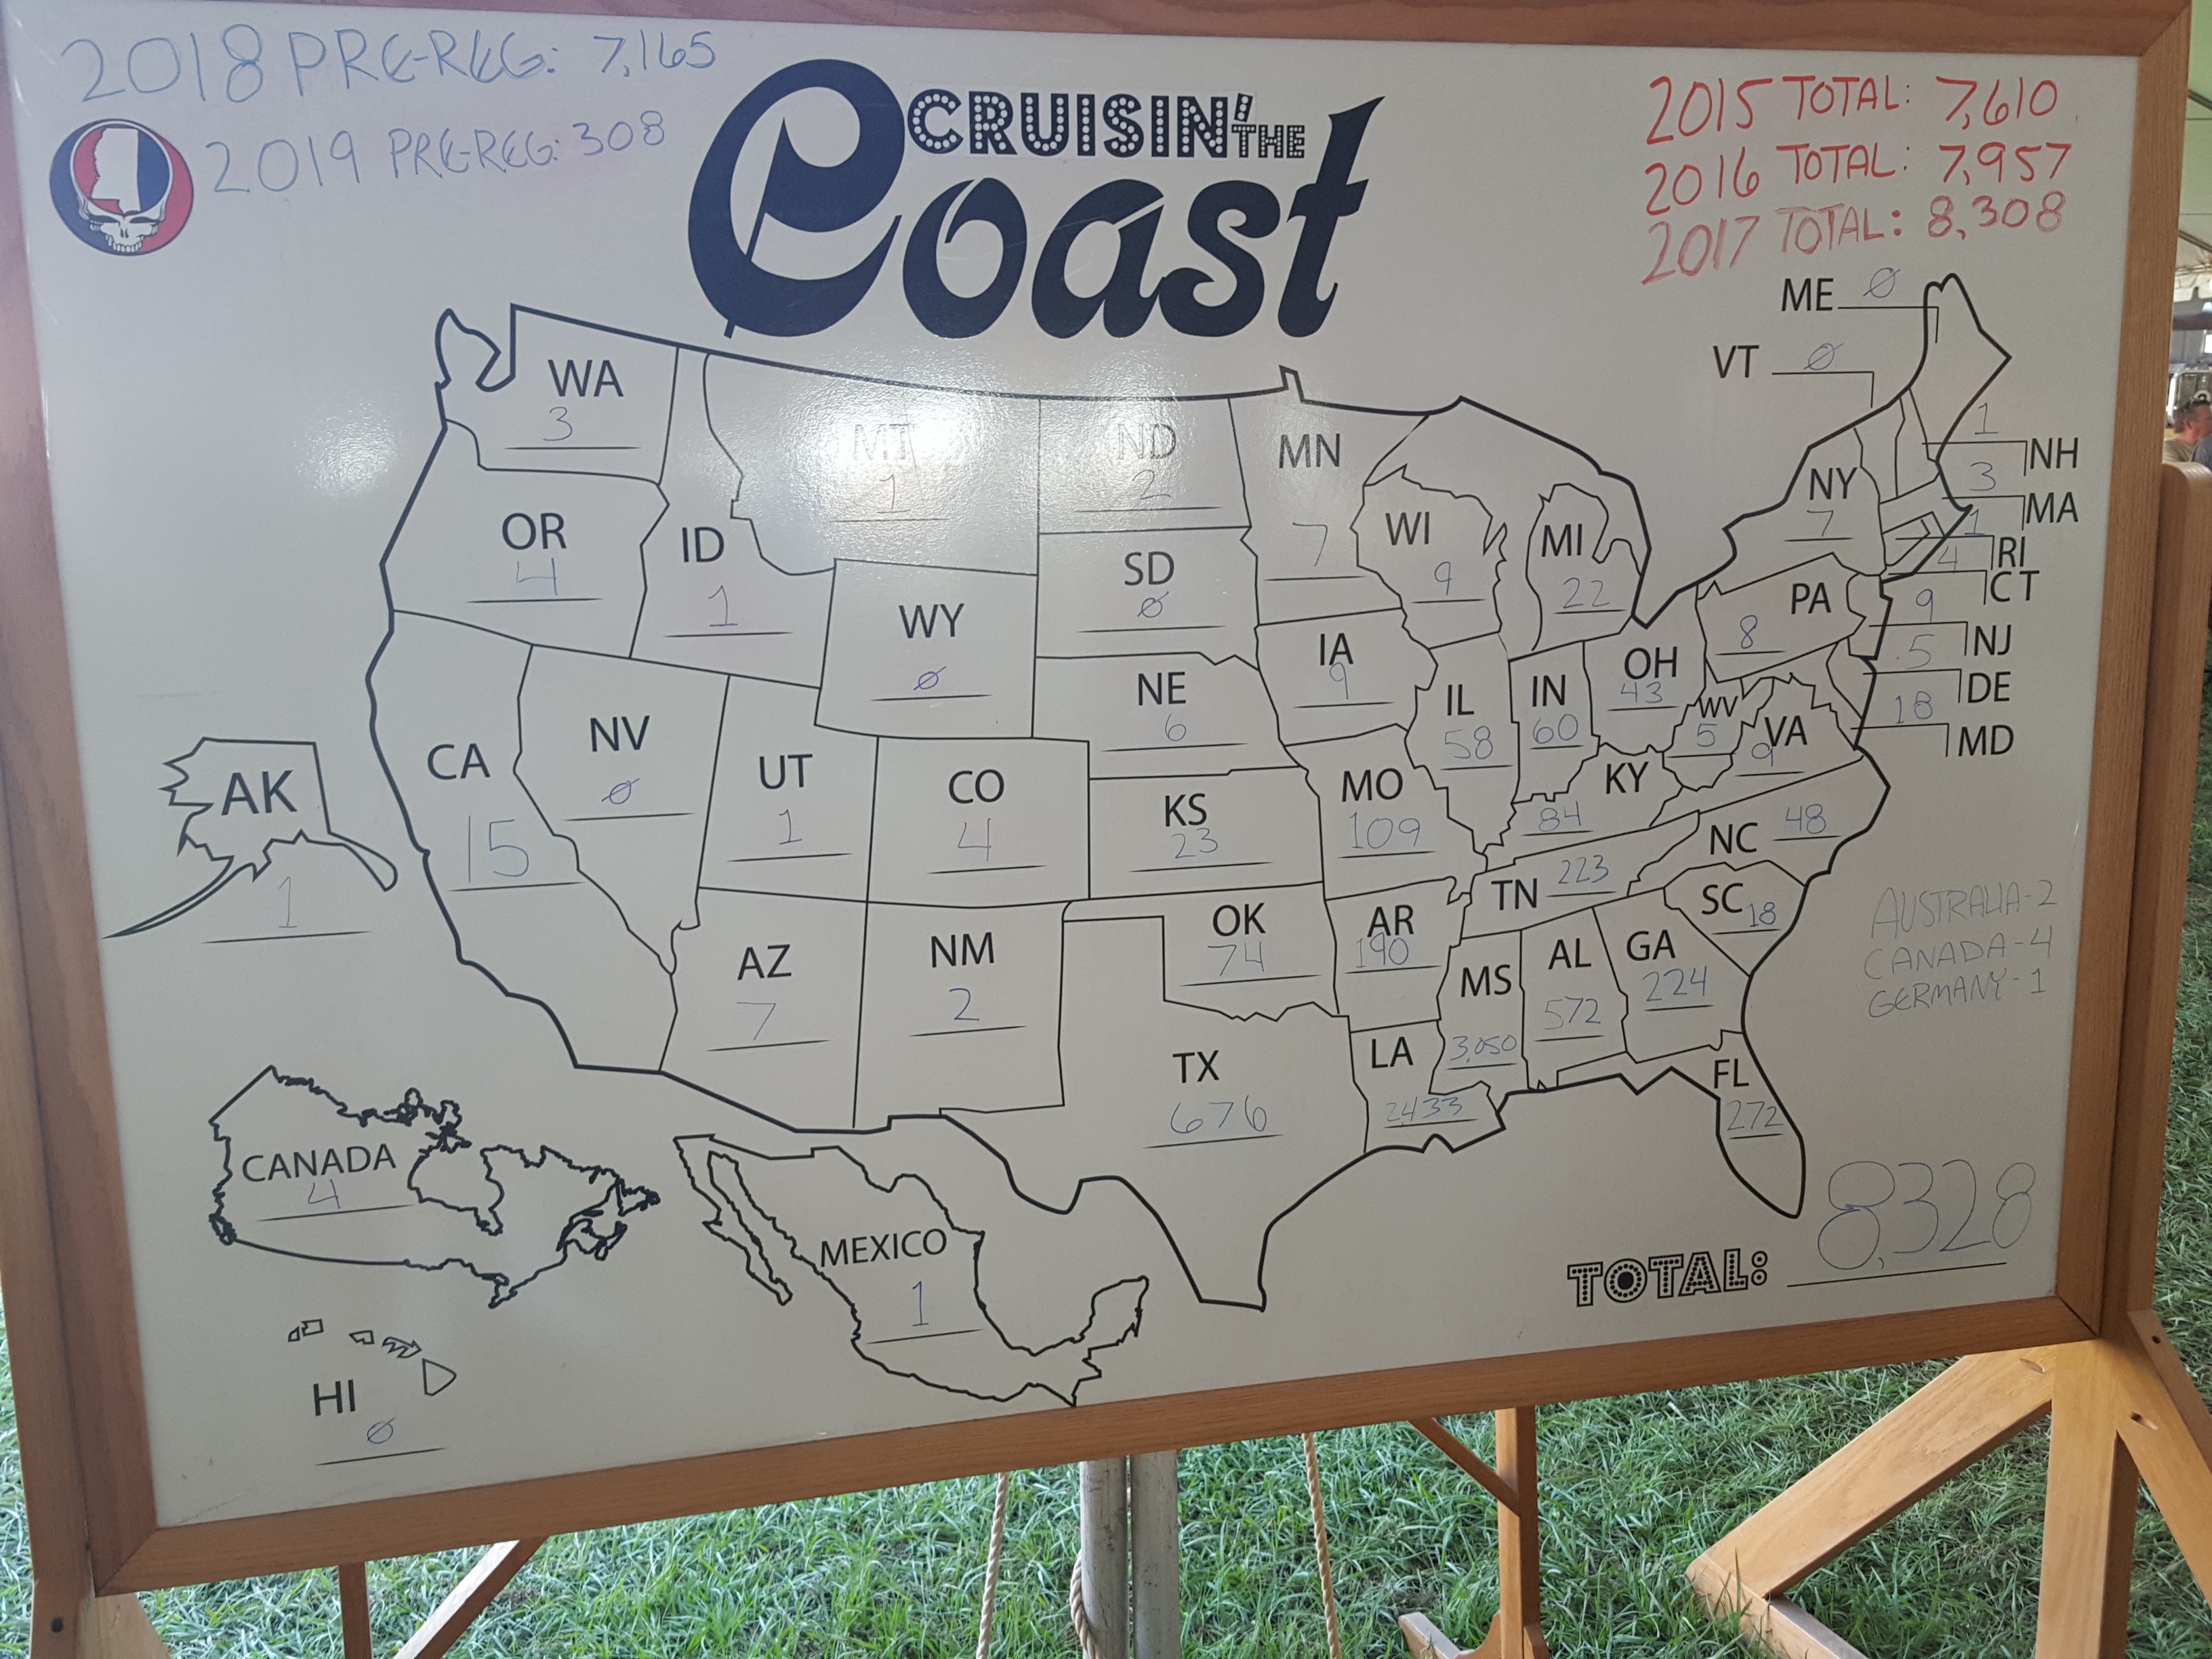 2018 PRE-REG: 7,165
2019 PRE-REG: 308
CRUISIN' THE
Coast
2015 TOTAL: 7,610
2016 TOTAL: 7,957
2017 TOTAL: 8,308
ME Ø
VT Ø
WA
3
MT
1
ND
2
MN
7
OR
4
ID
1
WY
Ø
SD
Ø
WI
9
MI
22
NY
7
1
NH
3
MA
1
RI
4
CT
9
NJ
5
DE
18
MD
PA
8
IA
9
NE
6
OH
43
IL
58
IN
60
WV
5
VA
9
CA
15
NV
Ø
UT
1
CO
4
KS
23
MO
109
KY
84
NC 48
TN 223
SC 18
AK
1
AZ
7
NM
2
OK
74
AR
190
MS
3,050
AL
572
GA
224
AUSTRALIA-2
CANADA-4
GERMANY-1
TX
676
LA
2433
FL
272
CANADA
4
MEXICO
1
HI
Ø
TOTAL: 8,328